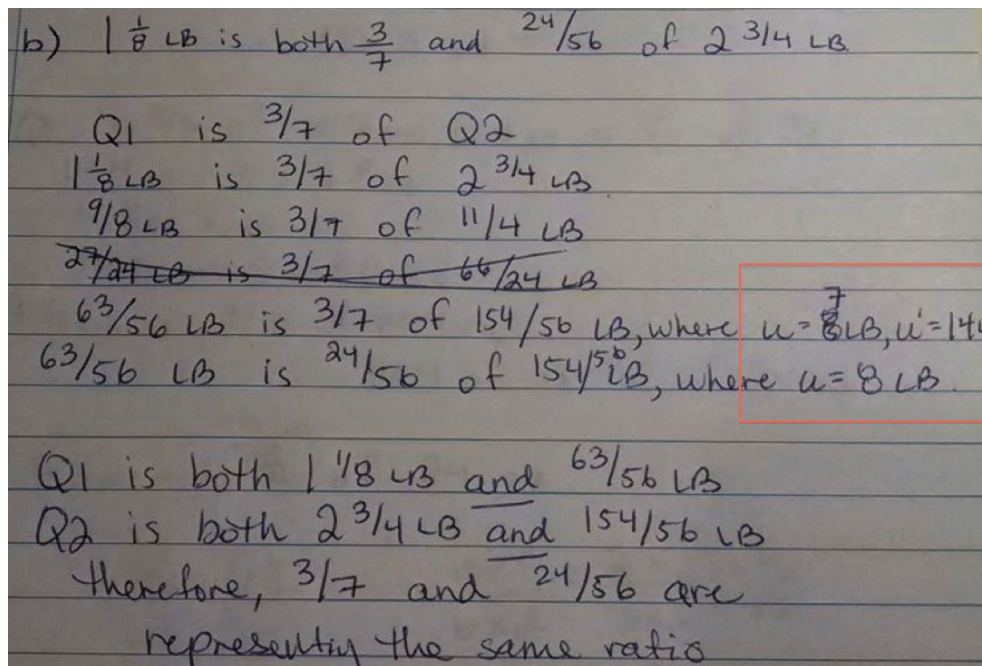 b) 1 1/8 LB is both 3/7 and 24/56 of 2 3/4 LB.
Q1 is 3/7 of Q2
1 1/8 LB is 3/7 of 2 3/4 LB
9/8 LB is 3/7 of 11/4 LB
27/24 LB is 3/7 of 66/24 LB
63/56 LB is 3/7 of 154/56 LB, where u = 7 LB, u' = 14
63/56 LB is 24/56 of 154/56 LB, where u = 8 LB.
Q1 is both 1 1/8 LB and 63/56 LB
Q2 is both 2 3/4 LB and 154/56 LB
therefore, 3/7 and 24/56 are
representin the same ratio